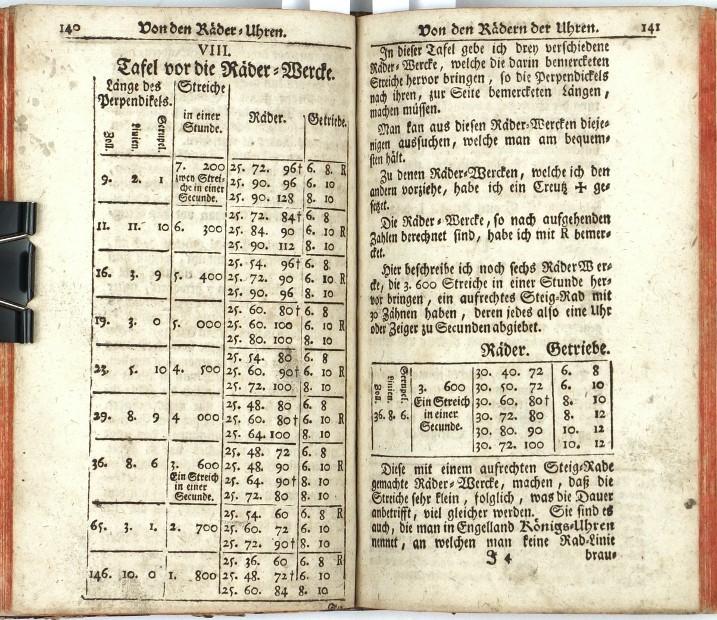 140 Von den Räder-Uhren.
VIII.
Tafel vor die Räder-Wercke.
Länge des Perpendikels. | Streiche in einer Stunde. | Räder. | Getriebe.
Zoll. Linien. Scrupel.
9. 2. 1 | 7. 200 zwey Streiche in einer Secunde. | 25. 72. 96† | 6. 8. R
25. 90. 96 | 6. 10
25. 90. 128 | 8. 10
11. 11. 10 | 6. 300 | 25. 72. 84† | 6. 8
25. 84. 90 | 6. 10 R
25. 90. 112 | 8. 10
16. 3. 9 | 5. 400 | 25. 54. 96† | 6. 8.
25. 72. 90 | 6. 10 R
25. 90. 96 | 8. 10
19. 3. 0 | 5. 000 | 25. 60. 80† | 6. 8
25. 60. 100 | 6. 10 R
25. 80. 100 | 8. 10
23. 5. 10 | 4. 500 | 25. 54. 80 | 6. 8
25. 60. 90† | 6. 10 R
25. 72. 100 | 8. 10
29. 8. 9 | 4 000 | 25. 48. 80 | 6. 8
25. 60. 80† | 6. 10 R
25. 64. 100 | 8. 10
36. 8. 6 | 3. 600 Ein Streich in einer Secunde. | 25. 48. 72 | 6. 8
25. 48. 90 | 6. 10 R
25. 64. 90† | 8. 10
25. 72. 80 | 8. 10
65. 3. 1. | 2. 700 | 25. 54. 60 | 6. 8 R
25. 60. 72 | 6. 10
25. 72. 90† | 8. 10
146. 10. 0 | 1. 800 | 25. 36. 60 | 6. 8 R
25. 48. 72† | 6. 10
25. 60. 84 | 8. 10
Von den Rädern der Uhren. 141
In dieser Tafel gebe ich drey verschiedene
Räder-Wercke, welche die darin bemerckten
Streiche hervor bringen, so die Perpendickels
nach ihren, zur Seite bemerckten Längen,
machen müssen.
Man kan aus diesen Räder-Wercken dieje-
nigen aussuchen, welche man am bequem-
sten hält.
Zu denen Räder-Wercken, welche ich den
andern vorziehe, habe ich ein Creutz ✝ ge-
setzt.
Die Räder-Wercke, so nach aufgehenden
Zahlen berechnet sind, habe ich mit R bemer-
cket.
Hier beschreibe ich noch sechs Räder Wer-
cke, die 3. 600 Streiche in einer Stunde her-
vor bringen, ein aufrechtes Steig-Rad mit
30 Zähnen haben, deren jedes also eine Uhr
oder Zeiger zu Secunden abgiebet.
Räder. Getriebe.
Zoll. Linien. Scrupel.
36. 8. 6. | 3. 600 Ein Streich in einer Secunde. | 30. 40. 72 | 6. 8
30. 50. 72 | 6. 10
30. 60. 80† | 8. 10
30. 72. 80 | 8. 12
30. 80. 90 | 10. 12
30. 72. 100 | 10. 12
Diese mit einem aufrechten Steig-Rade
gemachte Räder-Wercke, machen, daß die
Streiche sehr klein, folglich, was die Dauer
anbetrifft, viel gleicher werden. Sie sind es
auch, die man in Engelland Königs-Uhren
nennet, an welchen man keine Rad-Linie
J 4 brau-